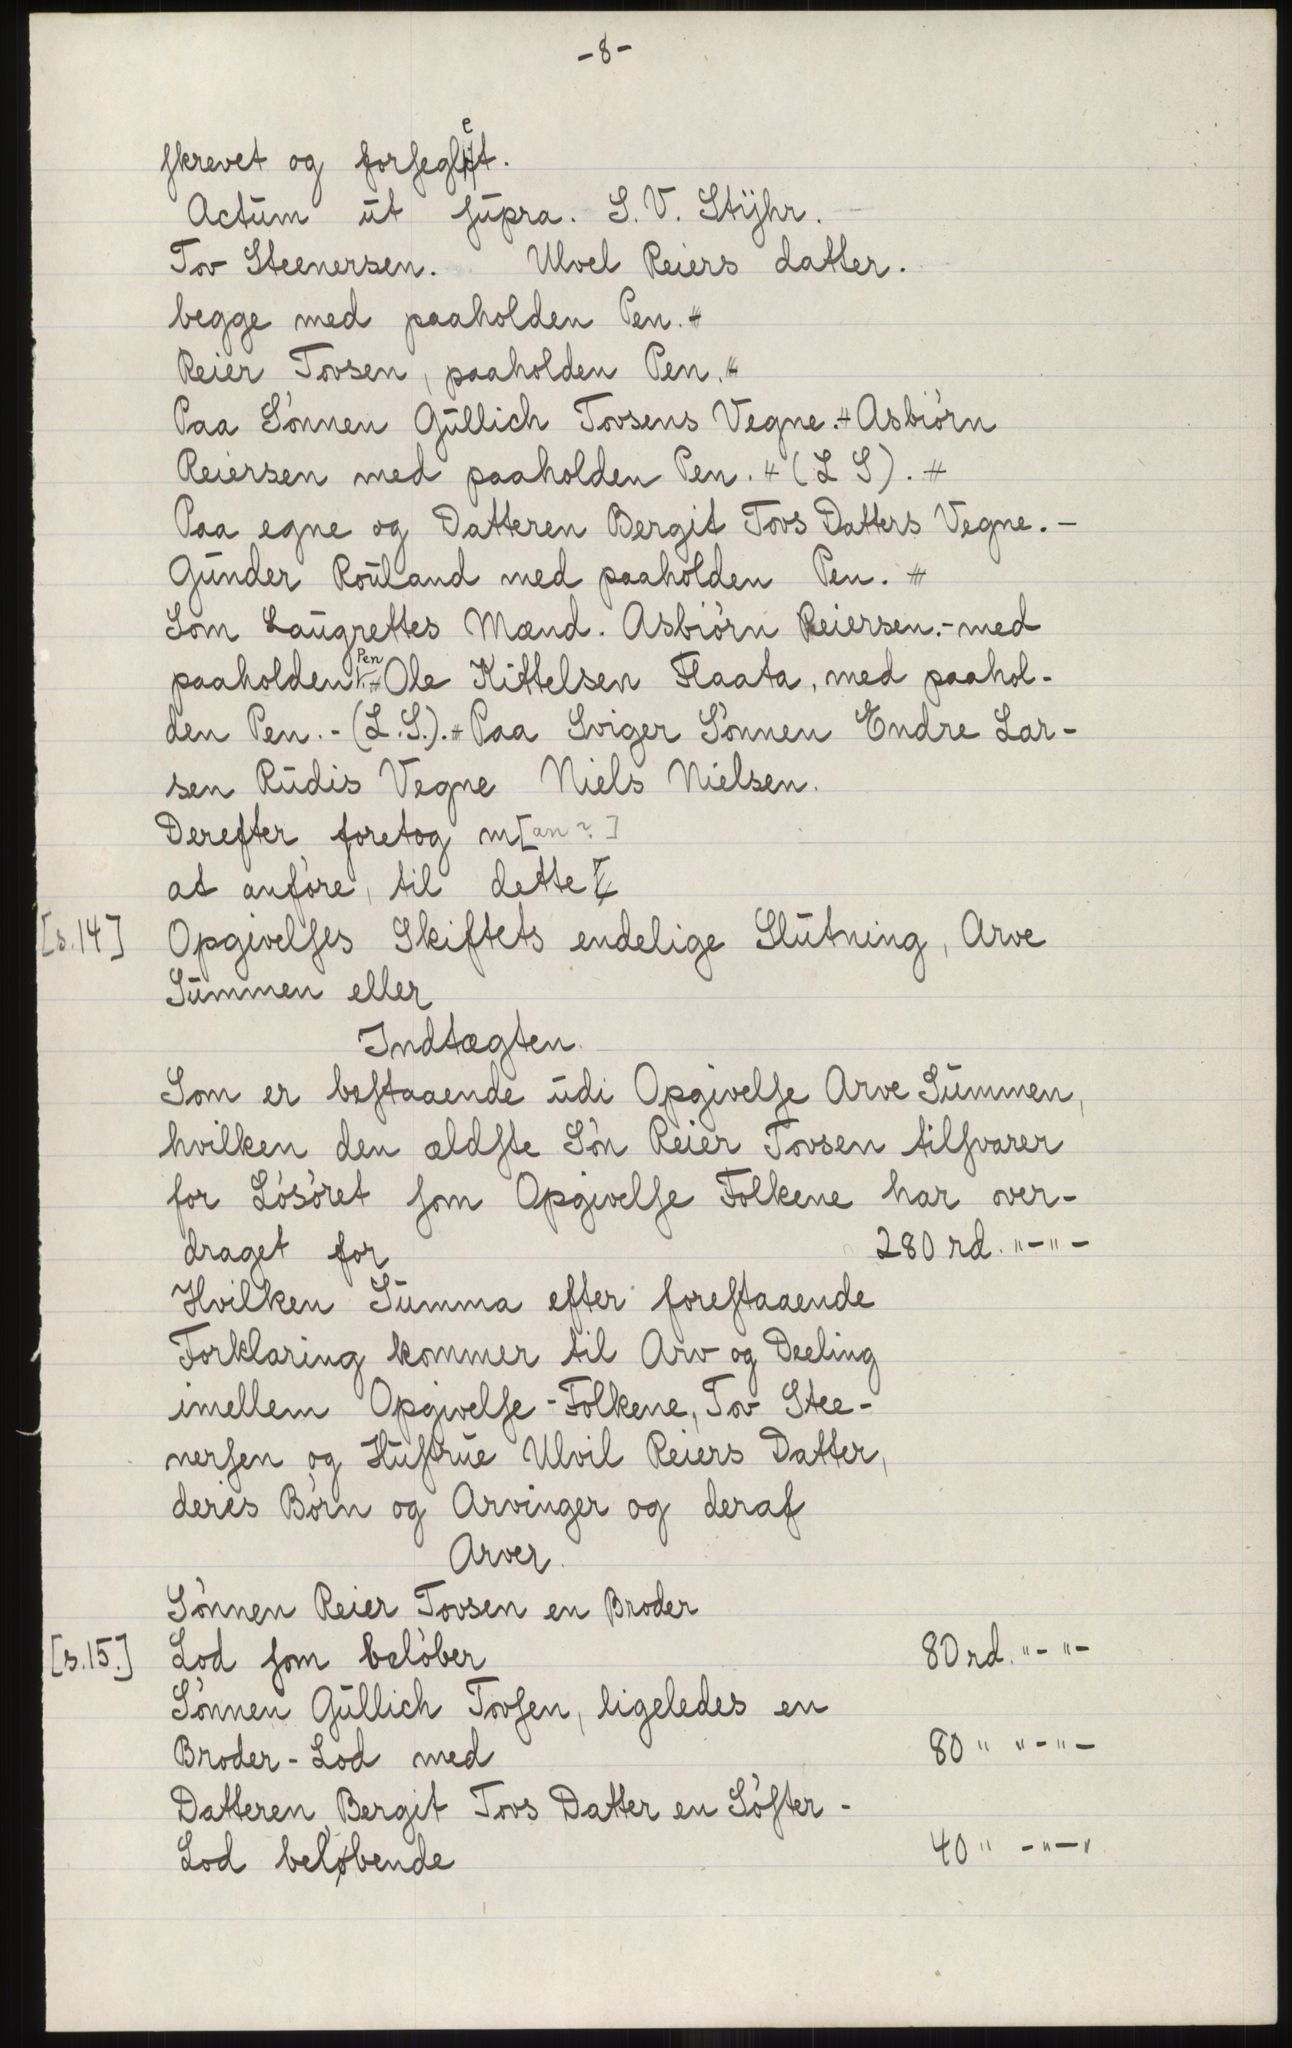 -8-
skrevet og forseglet.
Actum ut supra. S. V. Stÿhr.
Tov Steenersen. Ulvel Reiers datter.
begge med paaholden Pen. #
Reier Tovsen, paaholden Pen. #
Paa Sönnen Gullich Tovsens Vegne. # Asbiörn
Reiersen med paaholden Pen. # (L S). #
Paa egne og Datteren Bergit Tovs Datters Vegne. -
Gunder Rouland med paaholden Pen. #
Som Laugrettes Mænd. Asbiörn Reiersen. - med
paaholden Pen # Ole Kittelsen Flaata, med paahol-
den Pen. - (L.S.). # Paa Sviger Sönnen Endre Lar-
sen Rudis Vegne Niels Nielsen.
Derefter foretog m[an?]
at anföre, til dette
[s.14] Opgivelses Skiftets endelige Slutning, Arve
Summen eller
Indtægten.
Som er bestaaende udi Opgivelse Arve Summen,
hvilken den ældste Sön Reier Tovsen tilsvarer
for Lösöret som Opgivelse Folkene har over-
draget for 280 rd. "-"-
Hvilken Summa efter forestaaende
Forklaring kommer til Arv og Deeling
imellem Opgivelse-Folkene, Tov Stee-
nersen og Hustrue Ulvil Reiers Datter,
deres Börn og Arvinger og deraf
Arver.
Sönnen Reier Tovsen en Broder
[s.15.] Lod som belöber 80 rd. "- "-
Sönnen Gullich Tovsen, ligeledes en
Broder-Lod med 80 " "-"-
Datteren Bergit Tovs Datter en Söster-
Lod belöbende 40 " -"-"